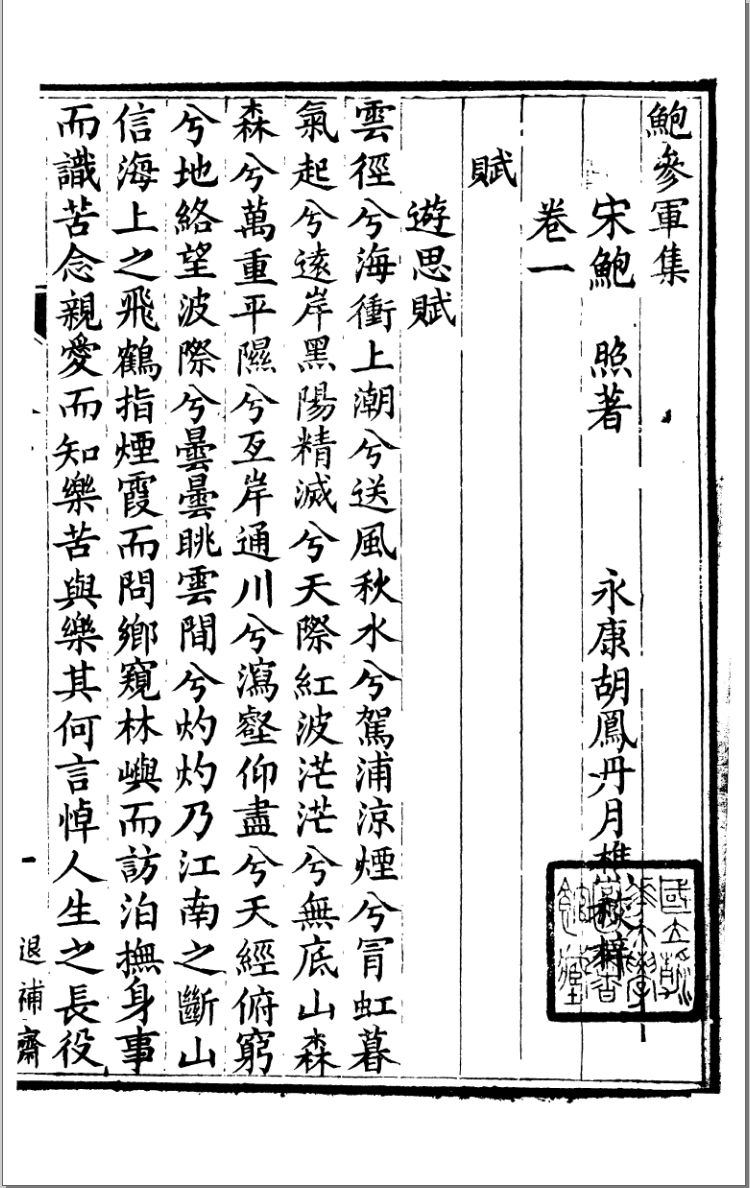 鮑參軍集
宋鮑　照著　永康胡鳳丹月樵校梓
卷一
賦
遊思賦
雲徑兮海衝上潮兮送風秋水兮駕浦涼煙兮冐虹暮
氣起兮遠岸黑陽精滅兮天際紅波茫茫兮無底山森
森兮萬重平隰兮亙岸通川兮瀉壑仰盡兮天經俯窮
兮地絡望波際兮曇曇眺雲間兮灼灼乃江南之斷山
信海上之飛鶴指煙霞而問鄉窺林嶼而訪泊撫身事
而識苦念親愛而知樂苦與樂其何言悼人生之長役
退補齋